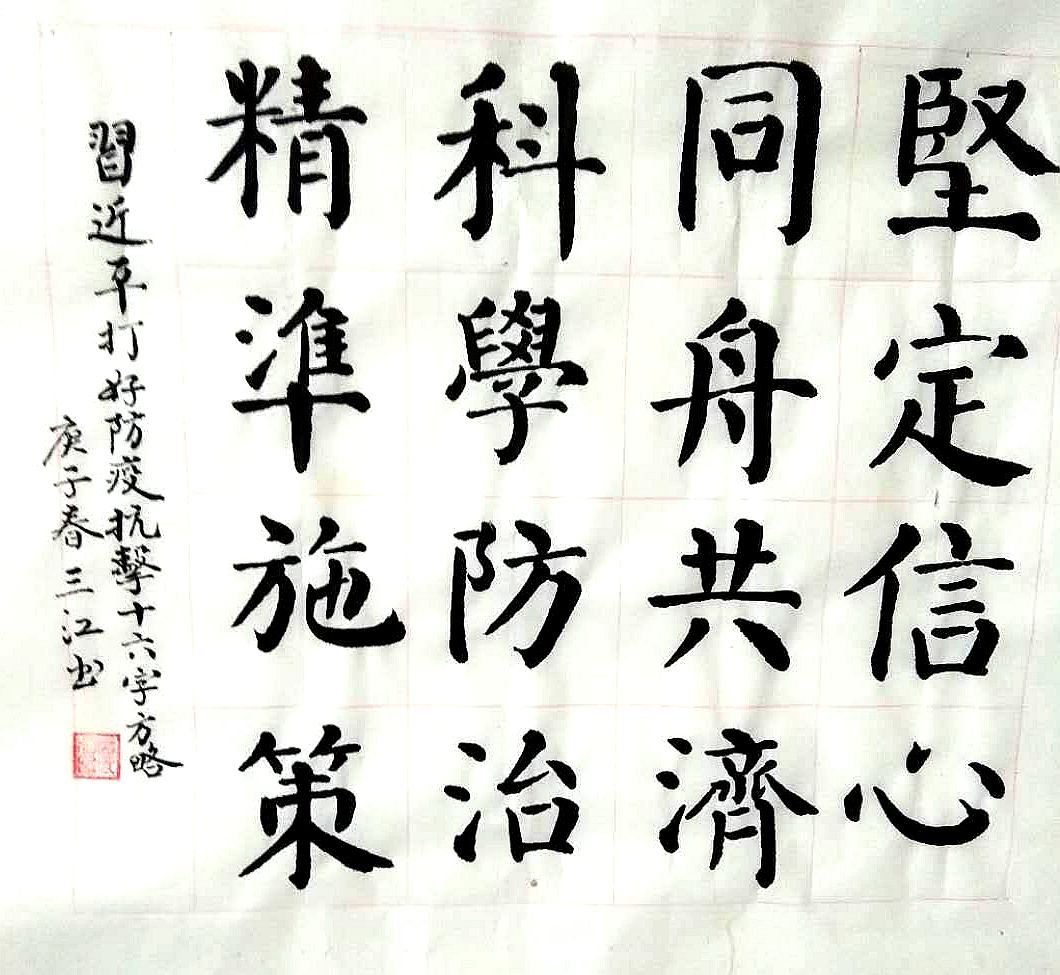 堅定信心
同舟共濟
科學防治
精準施策
習近平打好防疫抗擊十六字方略
庚子春三江书